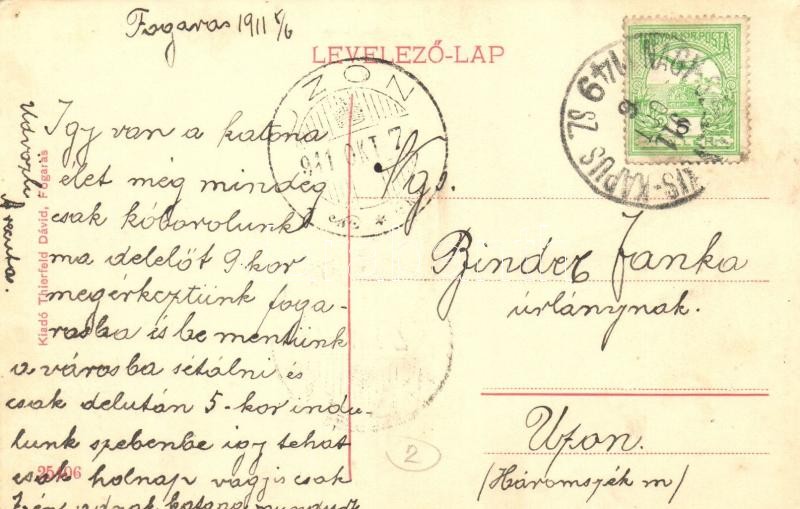 Fogaras 1911 5/6
LEVELEZŐ-LAP
MAGYAR KIR. POSTA
UZON
911 OKT. 7
149 SZ.
Igy van a katona
élet még mindég
csak kóborolunk
ma delelőt 9 kor
megérkeztünk foga-
rasba és be mentünk
a városba sétálni és
csak delután 5-kor indu-
lunk szebenbe igy tehat
csak holnap vagyis csak
Kiadó Thierfeld Dávid, Fogaras
25406
Ngs.
Binder Janka
úrlánynak.
Uzon.
(Háromszék m)
2